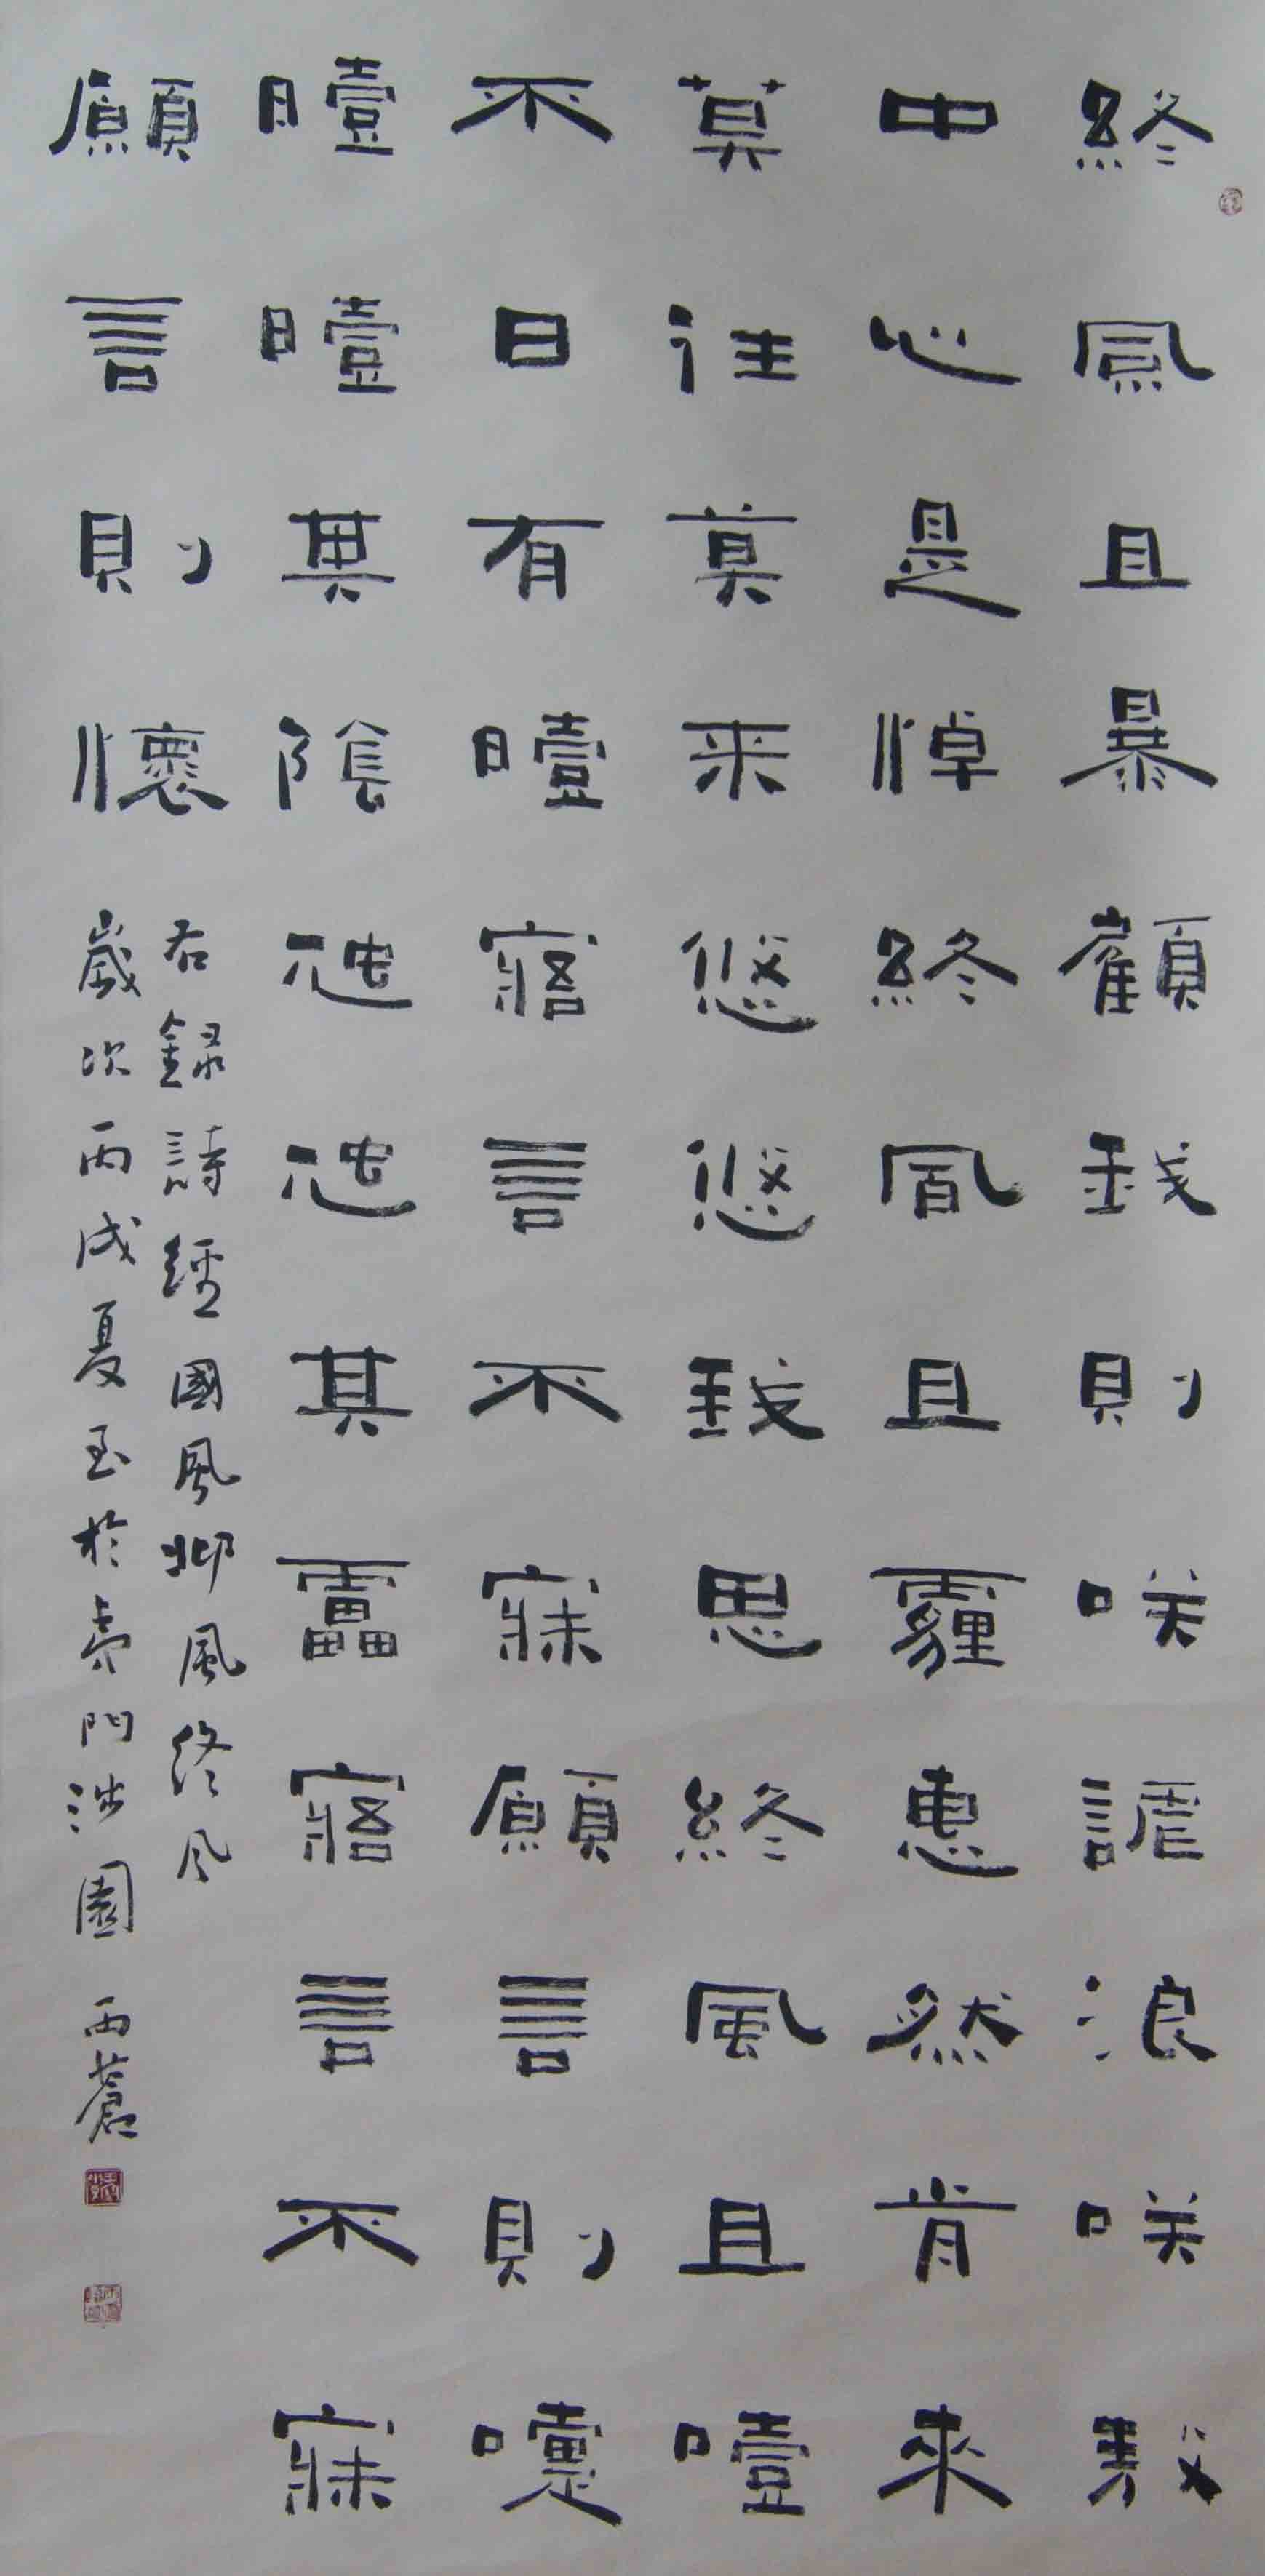 終風且暴顧我則咲謔浪咲敖
中心是悼終風且霾惠然肯來
莫往莫来悠悠我思終風且噎
不日有曀寤言不寐願言則嚏
曀曀其陰虺虺其靁寤言不寐
願言則懷
右録詩經國風邶風終风
歲次丙戌夏至於門涉園 雨蒼